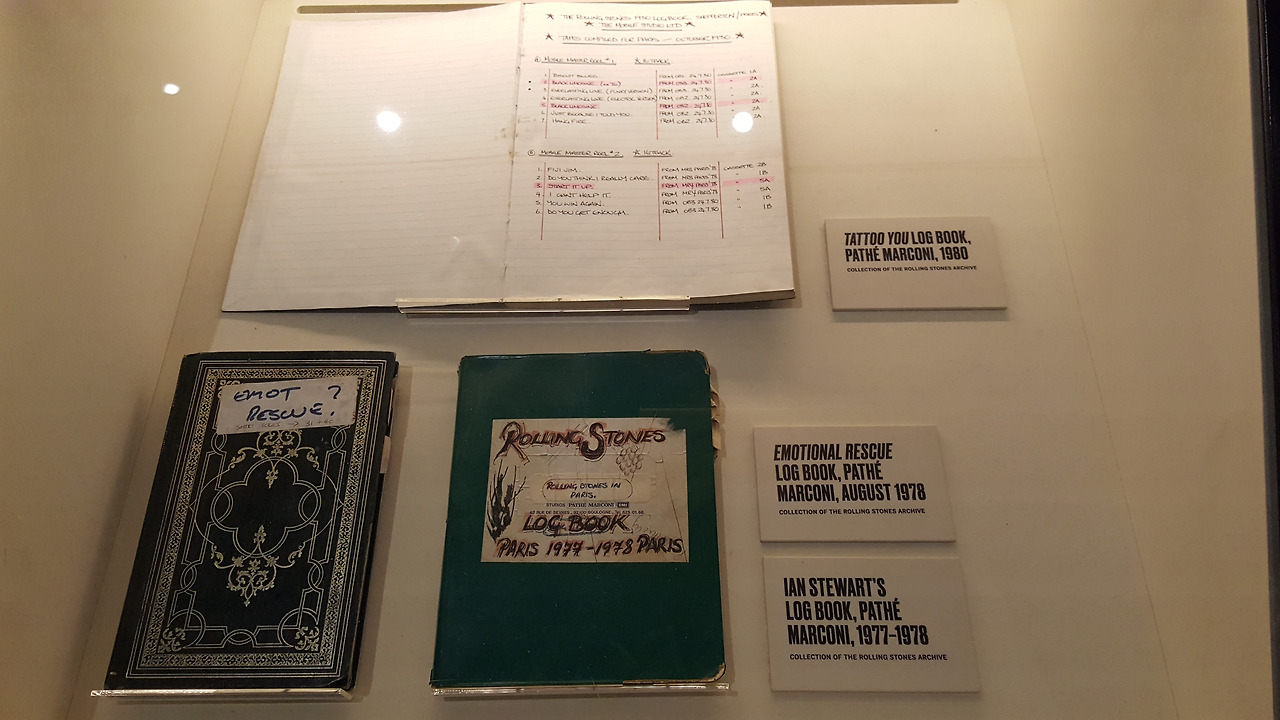 ★ THE ROLLING STONES 1980 LOG BOOK. SHEPPERTON / PARIS ★
★ THE MOBILE STUDIO LTD ★
★ TAPES COMPILED FOR PARIS — OCTOBER 1980 ★
Ⓐ MOBILE MASTER REEL #1. ★ 16 TRACK
1. BISCUIT BLUES. FROM 24.7.80 CASSETTE 1A
2. BLACK LIMOSINE FROM 24.7.80 " 2A
3. EVERLASTING LOVE. (FUNKY VERSION) FROM 24.7.80 " 2A.
4. EVERLASTING LOVE. FROM 24.7.80 " 2A
5. BLACK LIMOSINE. FROM 24.7.80 " 2A
6. JUST BECAUSE I TOLD YOU. FROM 24.7.80 " 2A
7. HANG FIRE. FROM 24.7.80 " 2A
Ⓑ MOBILE MASTER REEL #2. ★ 16 TRACK
1. FIJI JIM. FROM PARIS '78 CASSETTE 2B
2. DO YOU THINK I REALLY CARE. FROM PARIS '78 " 1B
3. START IT UP. FROM PARIS '78 " 5A
4. I CAN'T HELP IT. FROM PARIS '78 " 5A
5. YOU WIN AGAIN. FROM 24.7.80 " 1B
6. DO YOU GET ENOUGH. FROM 24.7.80 " 1B
TATTOO YOU LOG BOOK,
PATHÉ MARCONI, 1980
COLLECTION OF THE ROLLING STONES ARCHIVE
EMOT ?
RESCUE.
ROLLING STONES
ROLLING STONES IN
PARIS.
STUDIOS PATHÉ MARCONI EMI
LOG BOOK
PARIS 1977-1978 PARIS
EMOTIONAL RESCUE
LOG BOOK, PATHÉ
MARCONI, AUGUST 1978
COLLECTION OF THE ROLLING STONES ARCHIVE
IAN STEWART'S
LOG BOOK, PATHÉ
MARCONI, 1977–1978
COLLECTION OF THE ROLLING STONES ARCHIVE